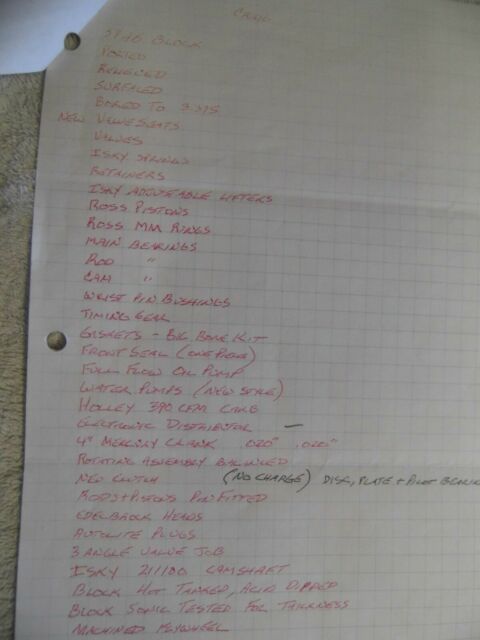 CRAIG
59AB BLOCK
PORTED
RELIEVED
SURFACED
BORED TO 3.375
NEW VALVE SEATS
VALVES
ISKY SPRINGS
RETAINERS
ISKY ADJUSTABLE LIFTERS
ROSS PISTONS
ROSS MM RINGS
MAIN BEARINGS
ROD "
CAM "
WRIST PIN BUSHINGS
TIMING GEAR
GASKETS - BIG BORE KIT
FRONT SEAL (ONE PIECE)
FULL FLOW OIL PUMP
WATER PUMPS (NEW STYLE)
HOLLEY 390 CFM CARB
ELECTRONIC DISTRIBUTOR —
4" MERCURY CRANK .020" .020"
ROTATING ASSEMBLY BALANCED
NEW CLUTCH (NO CHARGE) DISC, PLATE + PILOT BEARIN
RODS + PISTONS PIN FITTED
EDELBROCK HEADS
AUTOLITE PLUGS
3 ANGLE VALVE JOB
ISKY CAMSHAFT
BLOCK HOT TANKED, ACID DIPPED
BLOCK SONIC TESTED FOR THICKNESS
MACHINED FLYWHEEL